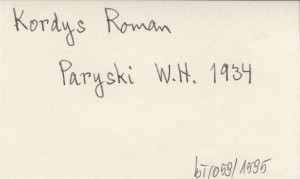 Kordys Roman
Paryski W.H. 1934
bT/059/1595